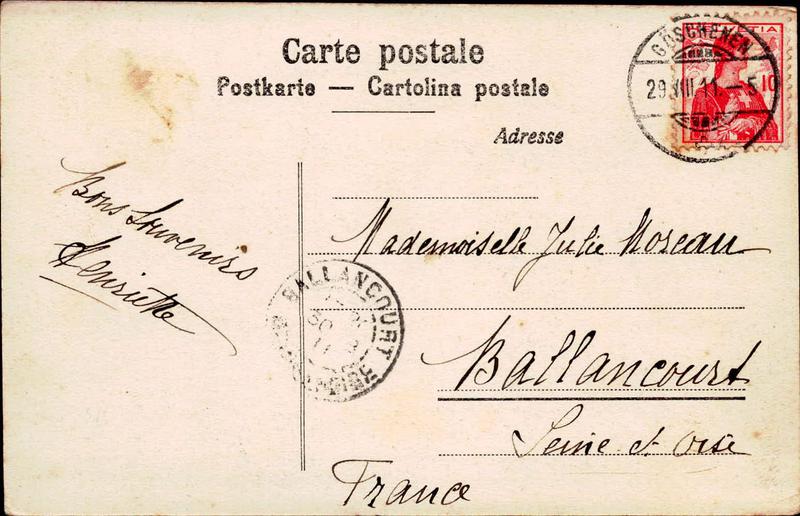 Carte postale
Postkarte — Cartolina postale
Adresse
GÖSCHENEN
29.VIII.11.–5
HELVETIA
10
Bons Souvenirs
Henriette
Mademoiselle Julie Moreau
BALLANCOURT
30
11
Ballancourt
Seine et Oise
France